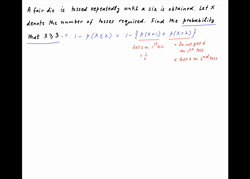 A fair die is tossed repeatedly until a six is obtained. Let X
denote the number of tosses required. Find the probability
that X ≥ 3. = 1 - P(X ≤ 2) = 1 - { P(X=1) + P(X=2) }
Get 6 in 1st toss
= Do not get 6
in 1st toss
= 1/6
x Get 6 in 2nd toss